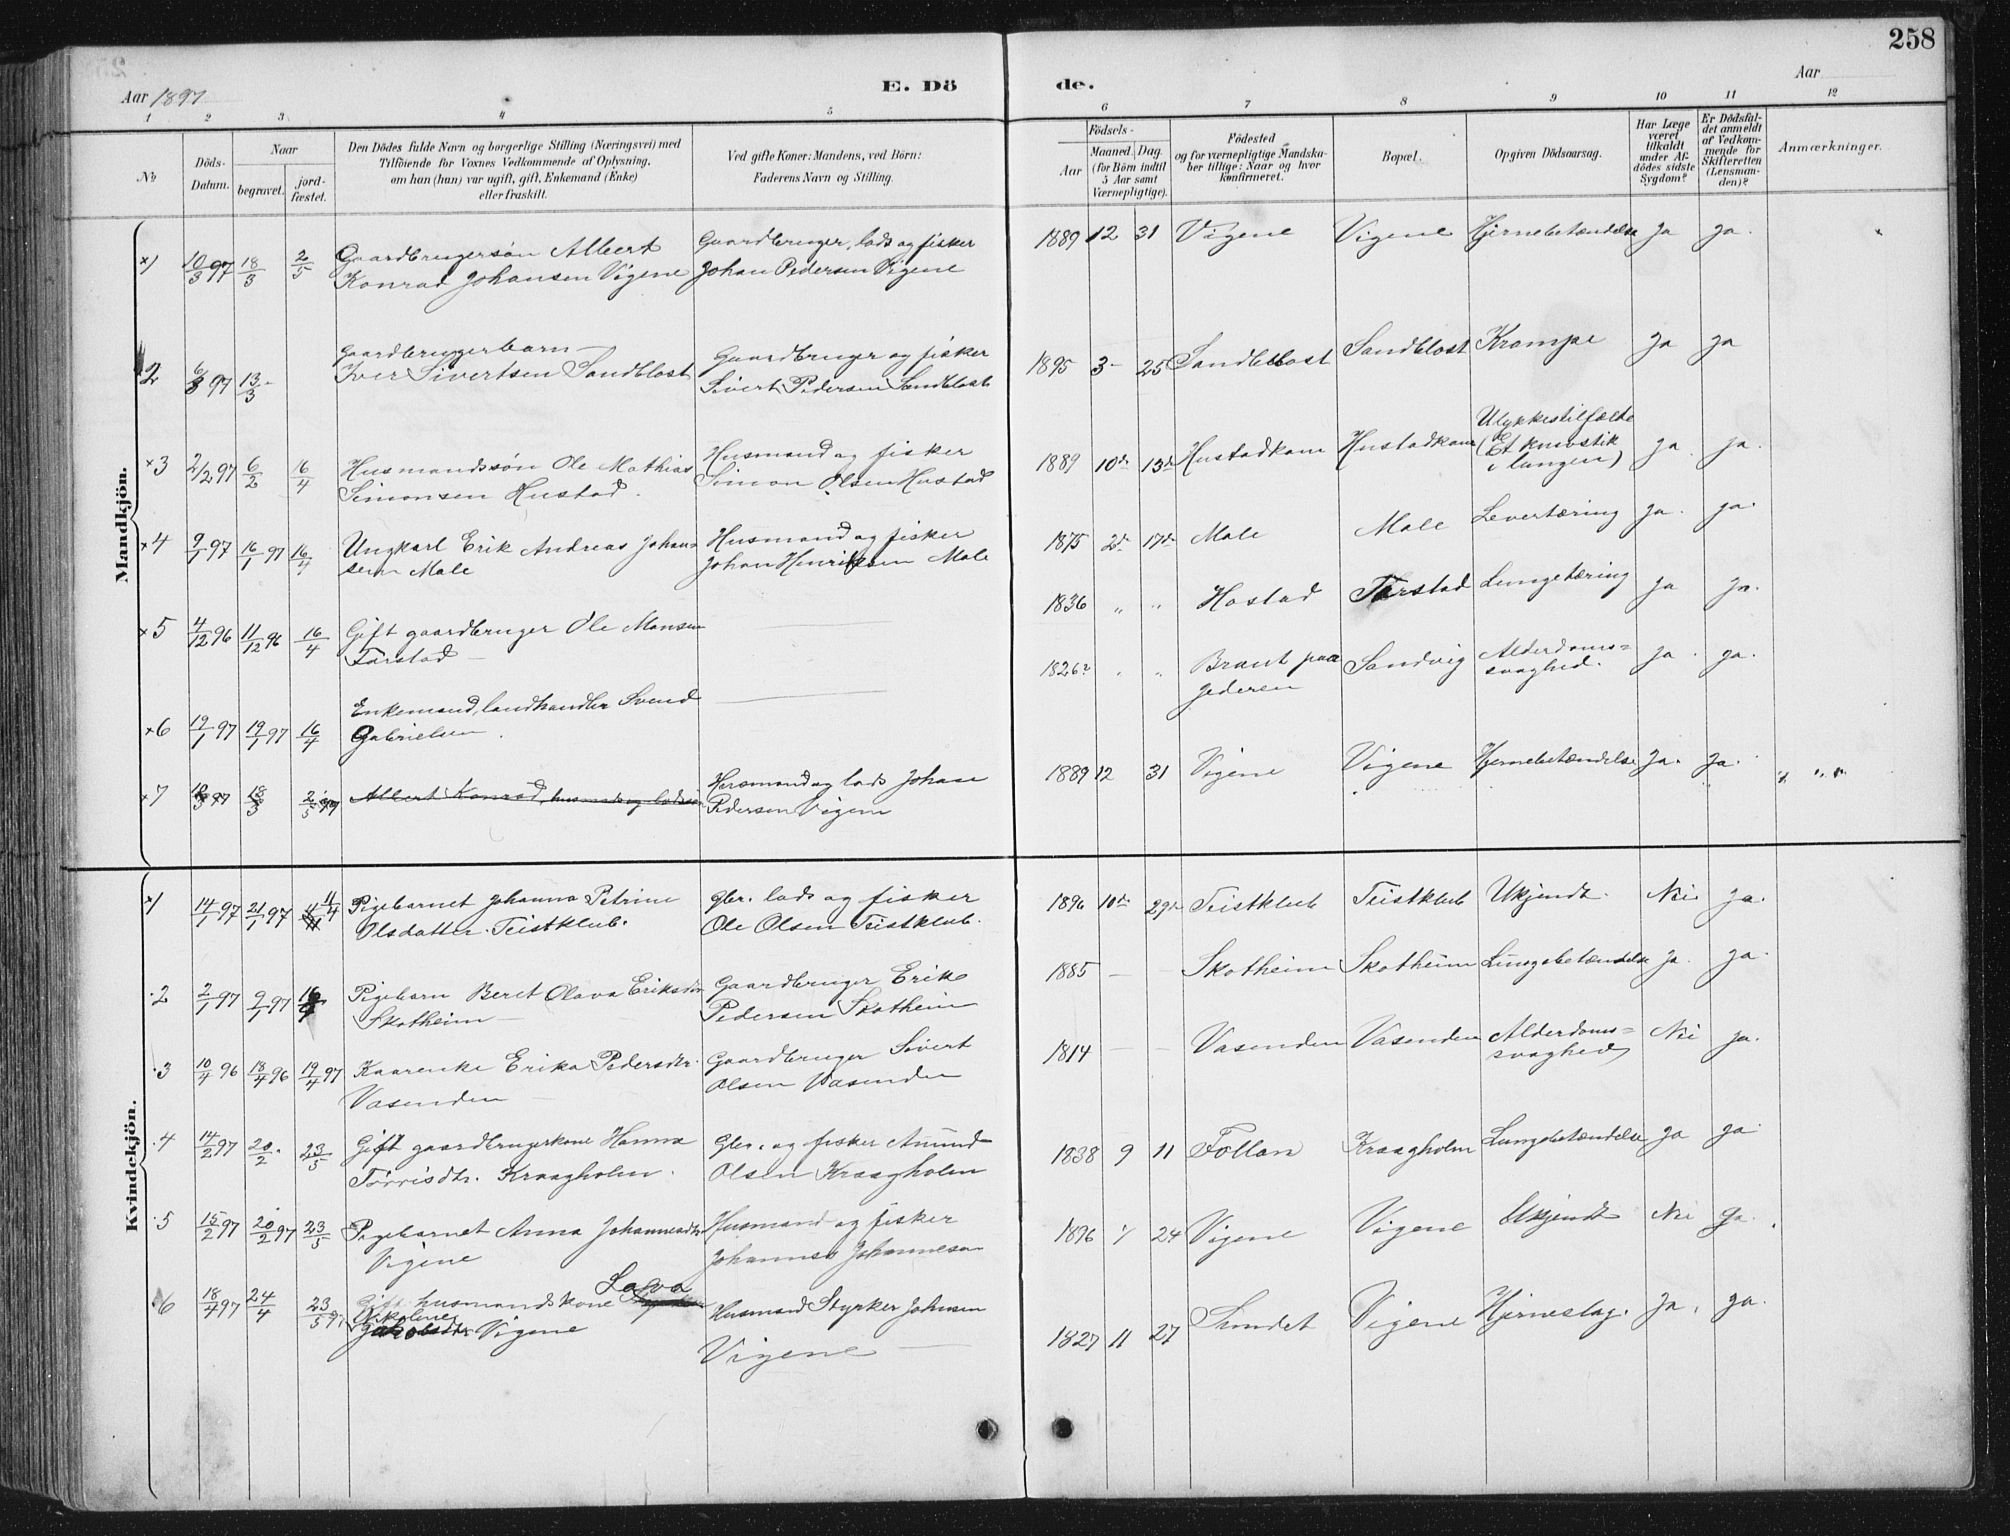 258
Aar 1897
E. Dö
de.
Aar
1 2 3 4 5 6 7 8 9 10 11 12
No
Döds-
Datum.
Naar
begravet.
jord-
fæstet.
Den Dödes fulde Navn og borgerlige Stilling (Næringsvei) med
Tilföiende for Voxnes Vedkommende af Oplysning,
om han (hun) var ugift, gift, Enkemand (Enke)
eller fraskilt.
Ved gifte Koner: Mandens, ved Börn:
Faderens Navn og Stilling.
Födsels-
Aar
Maaned. Dag
(for Börn indtil
5 Aar samt
Værnepligtige).
Födested
og for værnepligtige Mandska-
ber tillige: Naar og hvor
konfirmeret.
Bopæl.
Opgiven Dödsaarsag.
Har Læge
været
tilkaldt
under Af-
dödes sidste
Sygdom?
Er Dödsfal-
det anmeldt
af Vedkom-
mende for
Skifteretten
(Lensman-
den)?
Anmærkninger.
Mandkjön.
×1 10/3 97 18/3 2/5 Gaardbrugersøn Albert Gaardbruger, lods og fisker 1889 12 31 Vigene Vigene Hjernebetændelse Ja ja.
Konrad Johansen Vigene Johan Pedersen Vigene
2 6/3 97 13/3 Gaardbrugerbarn Gaardbruger og fisker 1895 3 25 Sandblost Sandblost Krampe Ja Ja
Iver Sivertsen Sandblost Sivert Pedersen Sandblost
×3 2/2 97 6/2 16/4 Husmandssøn Ole Mathias Husmand og fisker 1889 10de 13de Hustadkam Hustadkam Ulykkestilfælde ja ja.
Simonsen Hustad. Simon Olsen Hustad (Et knivstik
i lungen)
×4 9/1 97 16/1 97 16/4 Ungkarl Erik Andreas Johan- Husmand og fisker 1875 2de 17de Male Male Levertæring ja. ja.
sen Male Johan Henriksen Male
×5 4/12 96 11/12 96 16/4 Gift gaardbruger Ole Monsen 1836 " " Hostad Tarstad Lungetæring ja ja.
Tarstad
×6 12/1 97 19/1 97 16/4 Enkemand, landhandler Svend 1826? " " Braut paa Sandvig Alderdoms= ja. ja.
Gabrielsen. Jederen svaghed.
×7 10/3 97 18/3 2/5 97 Albert Konrad, husmds og lodssøn Husmand og lods Johan 1889 12 31 Vigene Vigene Hjernebetændelse ja. ja.
Pedersen Vigene
Kvindekjön.
×1 14/1 97 21/1 97 11/4 Pigebarnet Johanna Petrine Gbr. lods og fisker 1896 10de 29de Teistklub Teistklub Ukjendt. Nei ja.
Olsdatter Teistklub. Ole Olsen Teistklub.
2 2/1 97 9/1 97 Pigebarn Beret Olava Eriksdtr Gaardbruger Erik 1885 Skotheim Skotheim Lungebetændelse ja. ja.
Skotheim Pedersen Skotheim
3 10/4 96 18/4 96 19/4 97 Kaarenke Erika Pedersdtr. Gaardbruger Sivert 1814 Vasenden Vasenden Alderdoms= Nei ja.
Vasenden Olsen Vasenden svaghed
4 14/2 97 20/2 23/5 Gift gaardbrugerkone Hanna Gbr. og fisker Amund 1838 9 11 Follan Kraagholm Lungebetændelse ja ja.
Törrisdtr. Kraagholm. Olsen Kraagholm
5 15/2 97 20/2 97 23/5 Pigebarnet Anna Johannesdtr Husmand og fisker 1896 24 Vigene Vigene Ukjendt Nei Ja.
Vigene Johannes Johannesen
6 18/4 97 24/4 23/5 97 Gift husmandskone Lava Husmand Styrker Johnsen 1827 11 27 Sundet Vigene Hjerneslag. Ja. ja.
Nikoline
Jakobsdtr Vigene Vigene